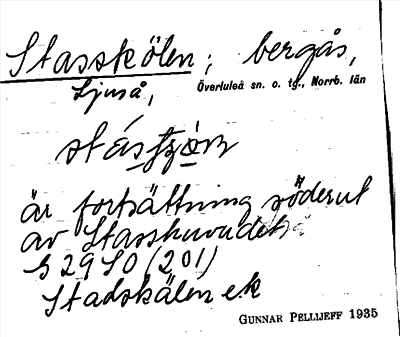 Stasskölen; bergås,
Ljuså, Överluleå sn. o. tg., Norrb. län
är fortsättning söderut
av Stasshuvudet
§ 29 SO (201)
Stadskälen e.k
GUNNAR PELLIJEFF 1935